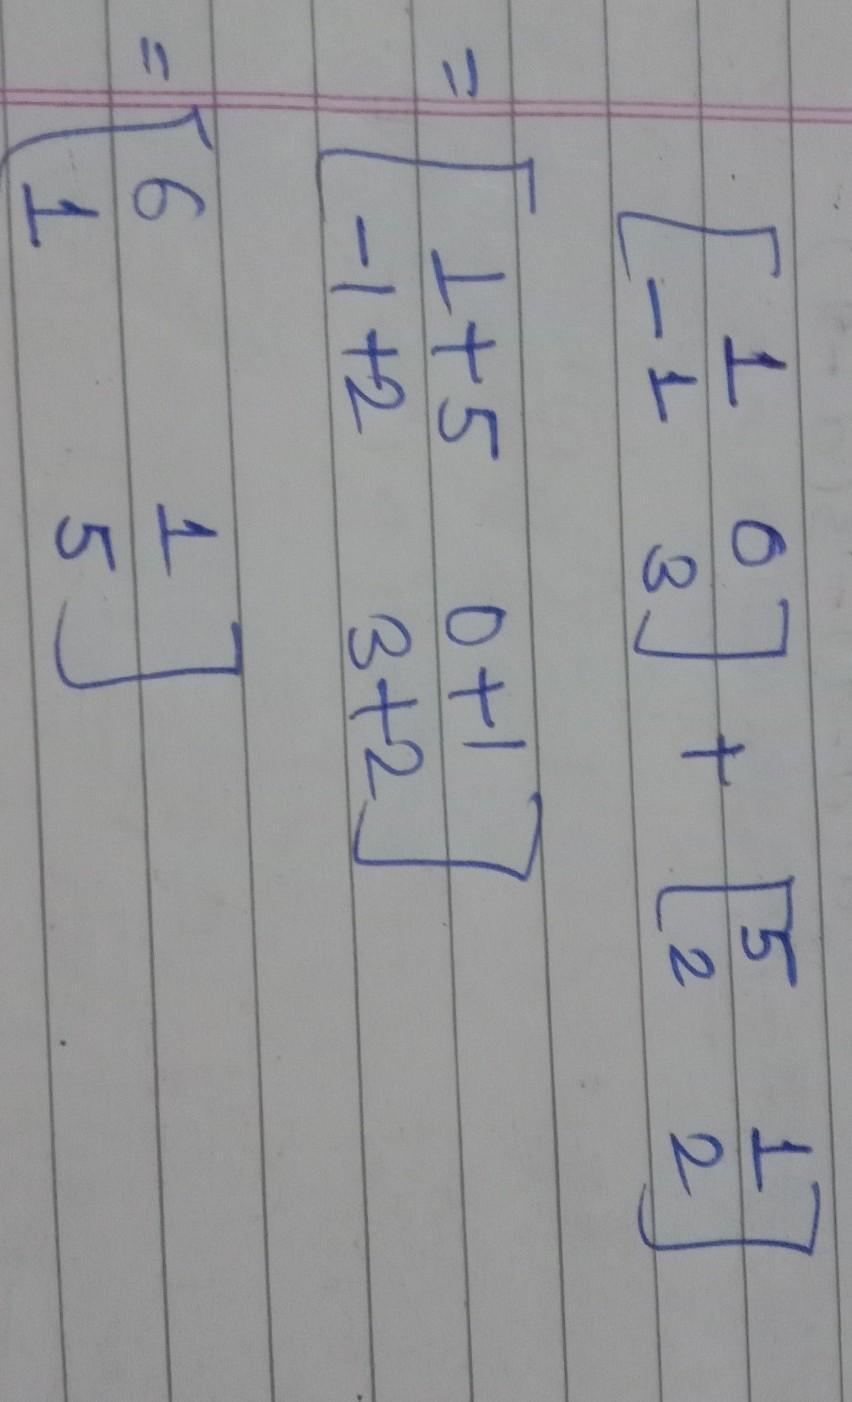 [ 1 0 ] + [ 5 1 ]
[ -1 3 ] [ 2 2 ]
= [ 1+5 0+1 ]
[ -1+2 3+2 ]
= [ 6 1 ]
[ 1 5 ]